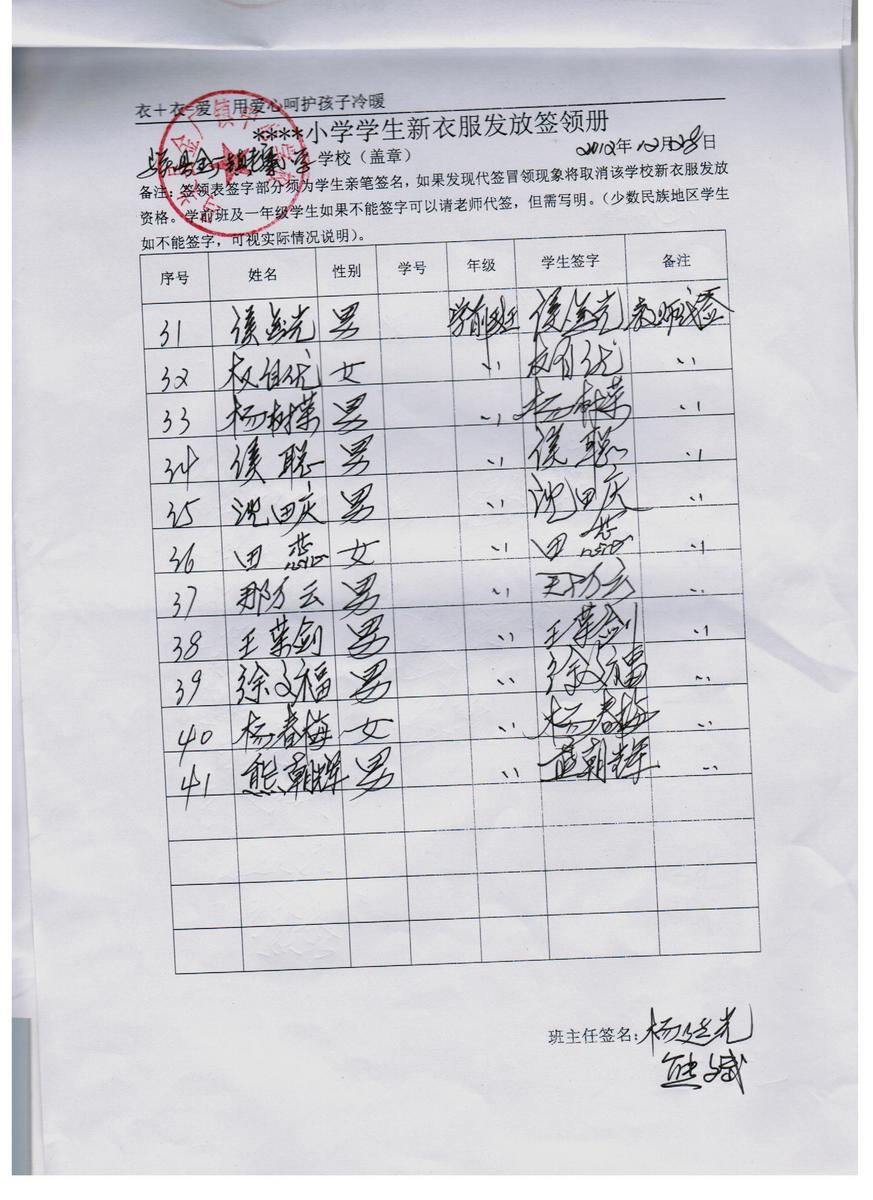 衣+衣=爱 用爱心呵护孩子冷暖
****小学学生新衣服发放签领册
学校（盖章） 2012年12月28日
备注：签领表签字部分须为学生亲笔签名，如果发现代签冒领现象将取消该学校新衣服发放
资格。学前班及一年级学生如果不能签字可以请老师代签，但需写明。（少数民族地区学生
如不能签字，可视实际情况说明）。
序号 姓名 性别 学号 年级 学生签字 备注
31 侯 光 男 学前班 侯 光 教师代签
32 权自优 女 〃 权自优 〃
33 杨树荣 男 〃 杨树荣 〃
34 侯聪 男 〃 侯聪 〃
35 沈田庆 男 〃 沈田庆 〃
36 田恋 女 〃 田恋 〃
37 那方云 男 〃 那方云 〃
38 王荣剑 男 〃 王荣剑 〃
39 徐文福 男 〃 徐文福 〃
40 杨春梅 女 〃 杨春梅 〃
41 熊朝辉 男 〃 熊朝辉 〃
班主任签名：杨廷光
熊斌